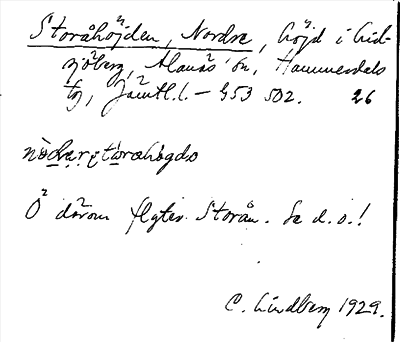 Storåhöjden, Nordre, höjd i Lid-
sjöberg, Alanäs sn, Hammerdals
tg, Jämtl. l. — 953 502. 26
Ö därom flyter Storån. Se d. o.!
C. Lindberg 1929.